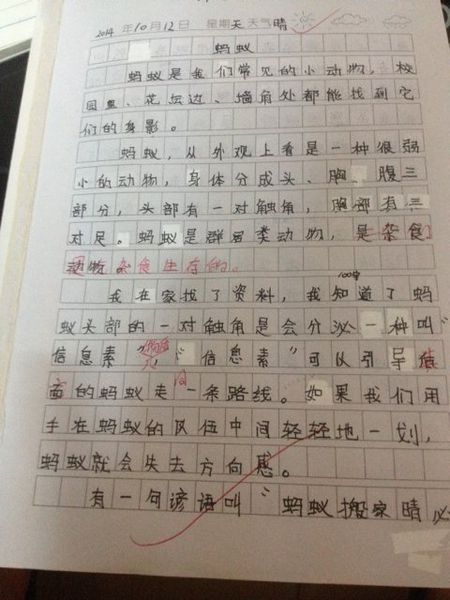 2014 年10月12日 星期天 天气晴
蚂蚁
蚂蚁是我们常见的小动物，校
园里、花坛边、墙角处都能找到它
们的身影。
蚂蚁，从外观上看是一种很弱
小的动物，身体分成头、胸、腹三
部分，头部有一对触角，胸部有三
对足。蚂蚁是群居类动物，是杂食
动物杂食生存的。
我在家找了资料，我知道了蚂
蚁头部的一对触角是会分泌一种叫“
信息素 “信息素”可以引导
面的蚂蚁走一条路线。如果我们用
手在蚂蚁的队伍中间轻轻地一划，
蚂蚁就会失去方向感。
有一句谚语叫“ 蚂蚁搬家晴必